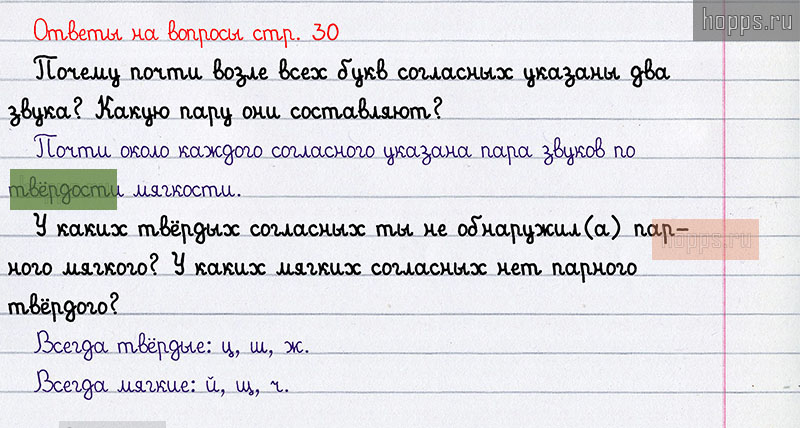 hopps.ru
Ответы на вопросы стр. 30
Почему почти возле всех букв согласных указаны два
звука? Какую пару они составляют?
Почти около каждого согласного указана пара звуков по
твёрдости мягкости.
У каких твёрдых согласных ты не обнаружил(а) пар-
hopps.ru
ного мягкого? У каких мягких согласных нет парного
твёрдого?
Всегда твёрдые: ц, ш, ж.
Всегда мягкие: й, щ, ч.